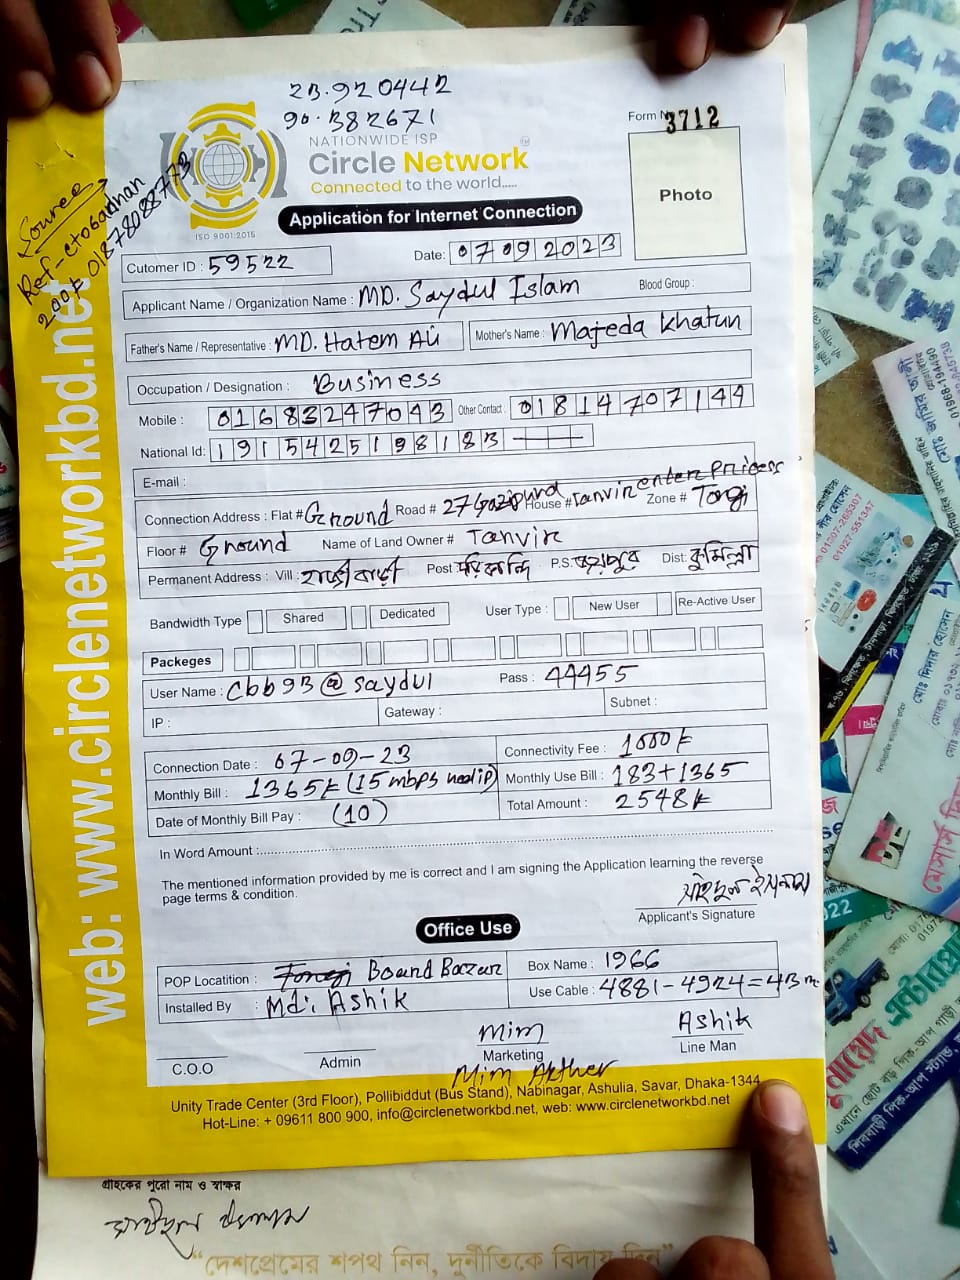 23.920442
90.382671
NATIONWIDE ISP
Circle Network
Connected to the world.....
ISO 9001:2015
Form 3712
Photo
Source
Ref-
200৳ 01878088773
web: www.circlenetworkbd.net
Application for Internet Connection
Cutomer ID : 59522
Date: 07092023
Applicant Name / Organization Name : MD. Saydul Islam
Blood Group :
Father's Name / Representative : MD. Hatem Ali
Mother's Name : Majeda Khatun
Occupation / Designation : Business
Mobile : 01683247043 Other Contact : 01814707144
National Id: 1915425198183
E-mail :
Connection Address : Flat # Ground Road # 27 House # Tanvir enter Zone # Tongi
Floor # Ground Name of Land Owner # Tanvir
Permanent Address : Vill : Post P.S: Dist: কুমিল্লা
Bandwidth Type Shared Dedicated User Type : New User Re-Active User
Packeges
User Name : cbb93@saydul Pass : 44455
IP : Gateway : Subnet :
Connection Date : 07-09-23 Connectivity Fee : 1000৳
Monthly Bill : 1365৳ (15 mbps Monthly Use Bill : 183+1365
Date of Monthly Bill Pay : (10) Total Amount : 2548৳
In Word Amount :
The mentioned information provided by me is correct and I am signing the Application learning the reverse
page terms & condition.
Applicant's Signature
Office Use
POP Locatition : Board Bazar Box Name : 1966
Installed By : Md: Ashik Use Cable : 4881-4924=43m
C.O.O
Admin
Mim
Marketing
Mim Akther
Ashik
Line Man
Unity Trade Center (3rd Floor), Pollibiddut (Bus Stand), Nabinagar, Ashulia, Savar, Dhaka-1344
Hot-Line: + 09611 800 900, info@circlenetworkbd.net, web: www.circlenetworkbd.net
গ্রাহকের পুরো নাম ও স্বাক্ষর
"দেশপ্রেমের শপথ নিন, দুর্নীতিকে বিদায় দিন"